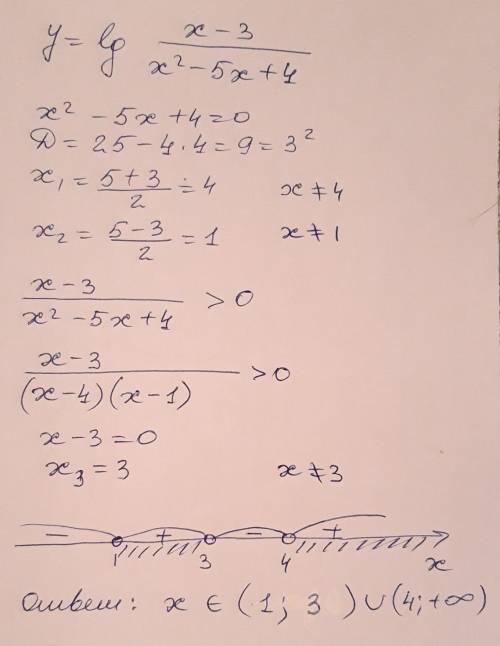 y = lg (x-3)/(x²-5x+4)
x² -5x+4=0
D = 25-4·4=9=3²
x₁ = (5+3)/2 = 4 x≠4
x₂ = (5-3)/2 = 1 x≠1
(x-3)/(x²-5x+4) > 0
(x-3)/((x-4)(x-1)) > 0
x-3=0
x₃ = 3 x≠3
- + - +
1 3 4 x
Ответ: x ∈ (1; 3) ∪ (4; +∞)